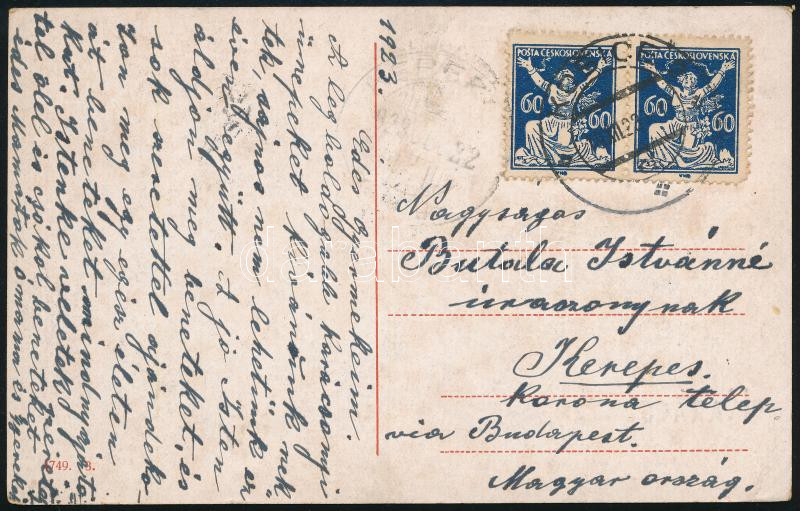 1923.
Édes Gyermekeim.
A legboldogabb karácsonyi
ünnepeket kivánunk nek
tek, sajnos nem lehetünk ez
évent együtt. A jó Isten
áldjon meg beneteket, és
sok szeretettel ajándéko-
zon meg egy egész életen
át beneteket mindnyájato
kat. Istenke veletek
tal ölel és csókol beneteket
édes Mamátok Omama és gyerekei
POŠTA ČESKOSLOVENSKÁ
60 60
POŠTA ČESKOSLOVENSKÁ
60 60
Nagysagos
Butala Istvánné
uraszonynak
Kerepes.
Korona telep
via Budapest.
Magyar ország.
1749. 3.
darabanth